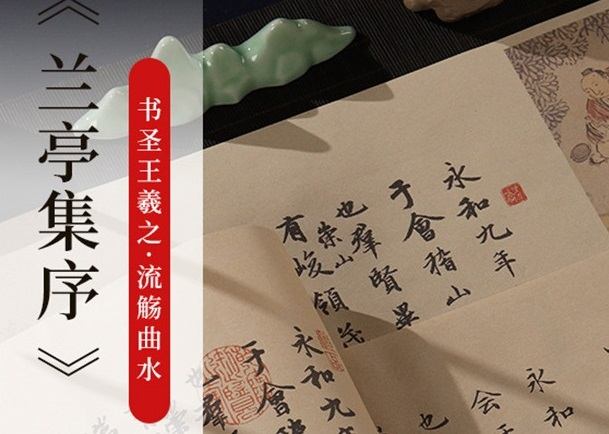 《兰亭集序》
书圣王羲之·流觞曲水
永和九年
于會稽山
也羣賢畢
有崇山
峻領茂
永和九
于會
永和
会
也